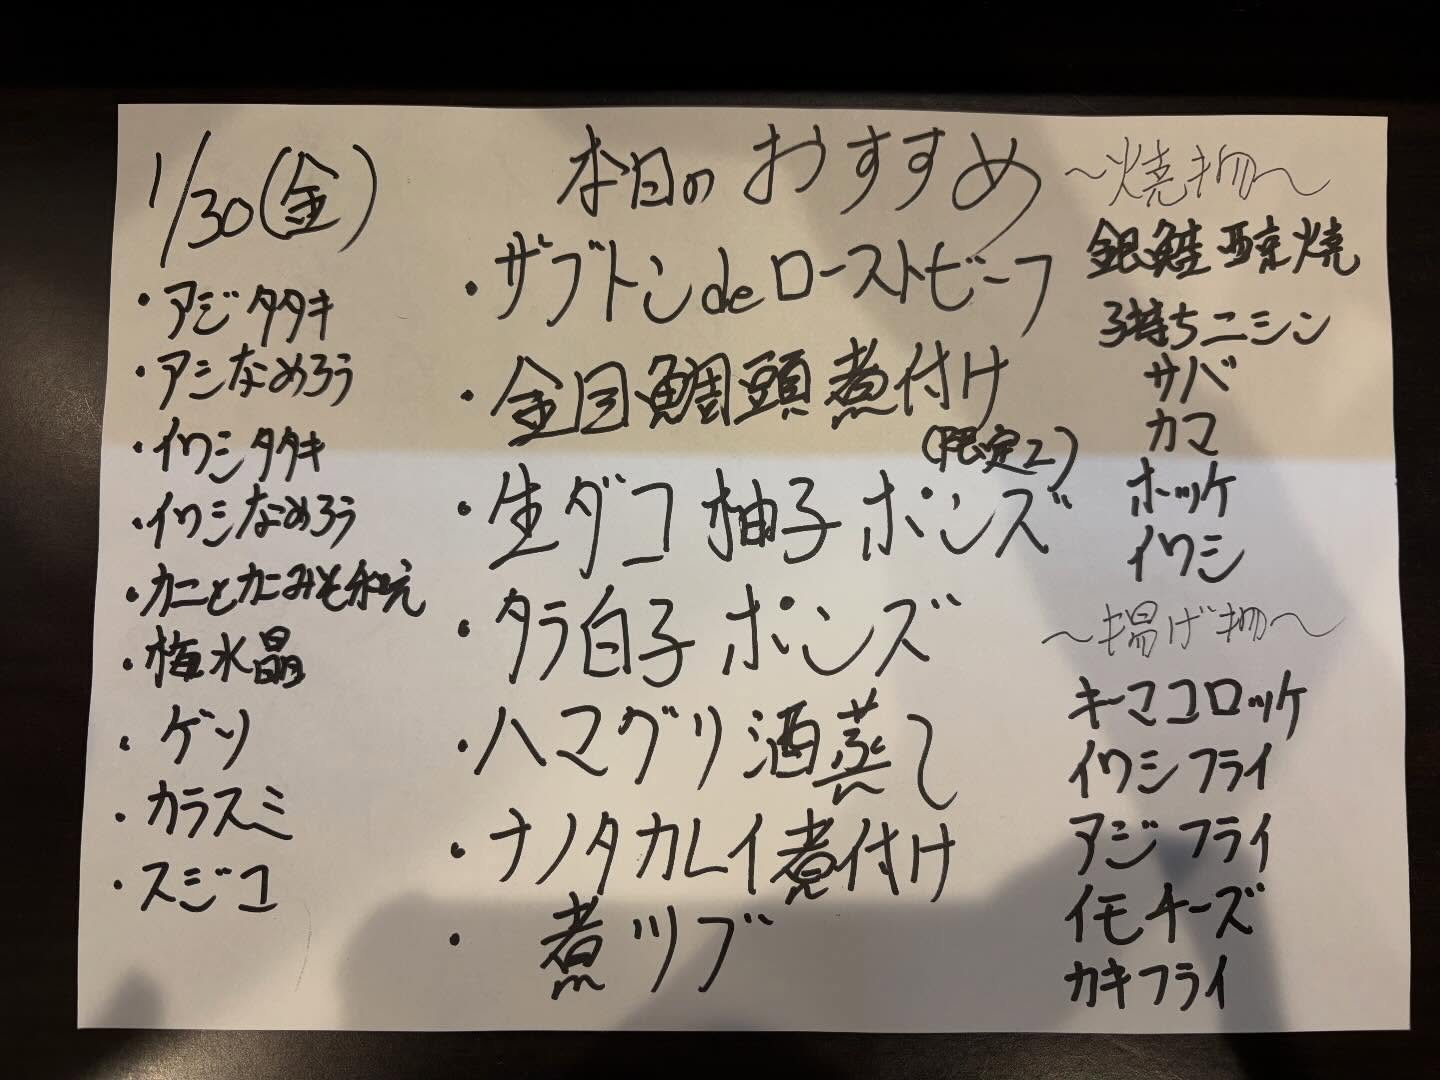 1/30(金)
・アジタタキ
・アジなめろう
・イワシタタキ
・イワシなめろう
・カニとカニみそ和え
・梅水晶
・ゲソ
・カラスミ
・スジコ
本日のおすすめ
・ザブトンdeローストビーフ
・金目鯛頭煮付け
(限定2)
・生ダコ柚子ポンズ
・タラ白子ポンズ
・ハマグリ酒蒸し
・ナメタカレイ煮付け
・煮ツブ
〜焼物〜
銀鮭西京焼
子持ちニシン
サバ
カマ
ホッケ
イワシ
〜揚げ物〜
キーマコロッケ
イワシフライ
アジフライ
イモチーズ
カキフライ